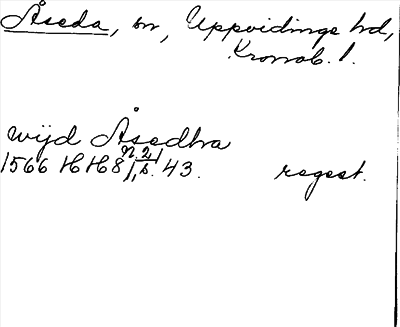 Åseda, sn, Uppvidinge hd,
Kronob. l.
wijd Åsedha
1566 HH8 n. 2, s. 43. regest.